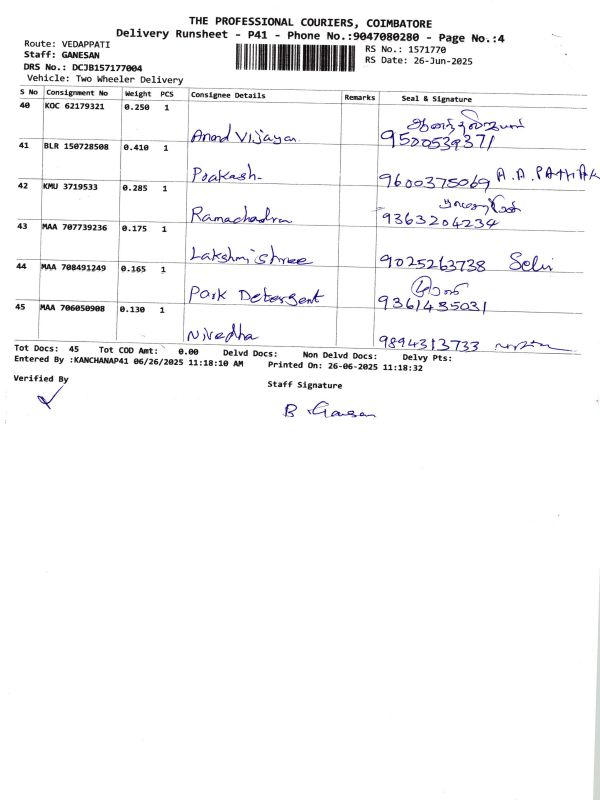 THE PROFESSIONAL COURIERS, COIMBATORE
Delivery Runsheet - P41 - Phone No.:9047080280 - Page No.:4
Route: VEDAPPATI
Staff: GANESAN
DRS No.: DCJB157177004
Vehicle: Two Wheeler Delivery
RS No.: 1571770
RS Date: 26-Jun-2025
S No Consignment No Weight PCS Consignee Details Remarks Seal & Signature
40 KOC 62179321 0.250 1
Anand Vijayan 9500539371
41 BLR 150728508 0.410 1
Prakash 9600375069
42 KMU 3719533 0.285 1
Ramachadra 9363204234
43 MAA 707739236 0.175 1
Lakshmi Shree 9025263738 Selvi
44 MAA 708491249 0.165 1
Park Detergent 9361435031
45 MAA 706050908 0.130 1
Nivedha 9894313733
Tot Docs: 45 Tot COD Amt: 0.00 Delvd Docs: Non Delvd Docs: Delvy Pts:
Entered By :KANCHANAP41 06/26/2025 11:18:10 AM Printed On: 26-06-2025 11:18:32
Verified By
Staff Signature
B. Ganesan